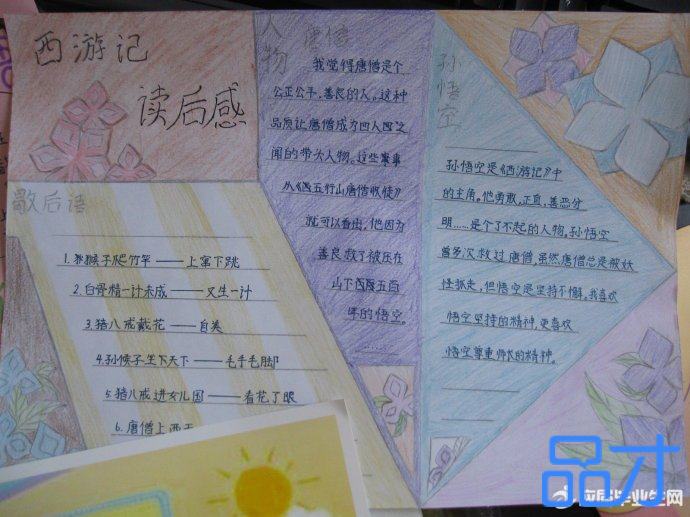 西游记
读后感
歇后语
1.猴子爬竹竿——上窜下跳
2.白骨精一计未成——又生一计
3.猪八戒戴花——自美
4.孙猴子坐下天下——毛手毛脚
5.猪八戒进女儿国——看花了眼
6.唐僧上西天
人物
唐僧
我觉得唐僧是个
公正公平,善良的人。这种
品质让唐僧成为四人
闻的带头人物。这些事
从《五行山唐僧收徒》
就可以看出,他因为
善良救了被压在
山下五百
年的悟空。
……
孙悟空
孙悟空是《西游记》中
的主角。他勇敢,正直,善恶分
明……是个了不起的人物,孙悟空
曾多次救过唐僧,虽然唐僧总是被妖
怪抓走,但悟空是坚持不懈。我喜欢
悟空坚持的精神,更喜欢
悟空尊重师长的精神。
品才
应届毕业生网